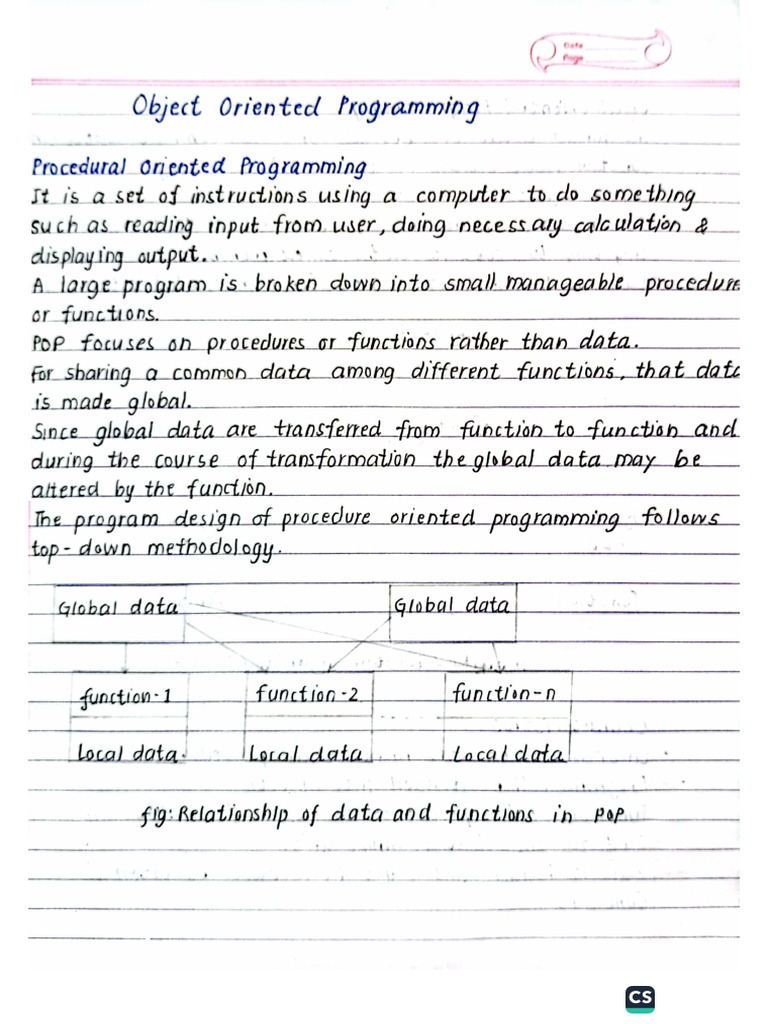 Date
Page
Object Oriented Programming
Procedural Oriented Programming
It is a set of instructions using a computer to do something
such as reading input from user, doing necessary calculation &
displaying output.
A large program is broken down into small manageable procedure
or functions.
POP focuses on procedures or functions rather than data.
For sharing a common data among different functions, that data
is made global.
Since global data are transferred from function to function and
during the course of transformation the global data may be
altered by the function.
The program design of procedure oriented programming follows
top-down methodology.
Global data Global data
function-1 function-2 function-n
Local data Local data Local data
fig: Relationship of data and functions in POP
CS